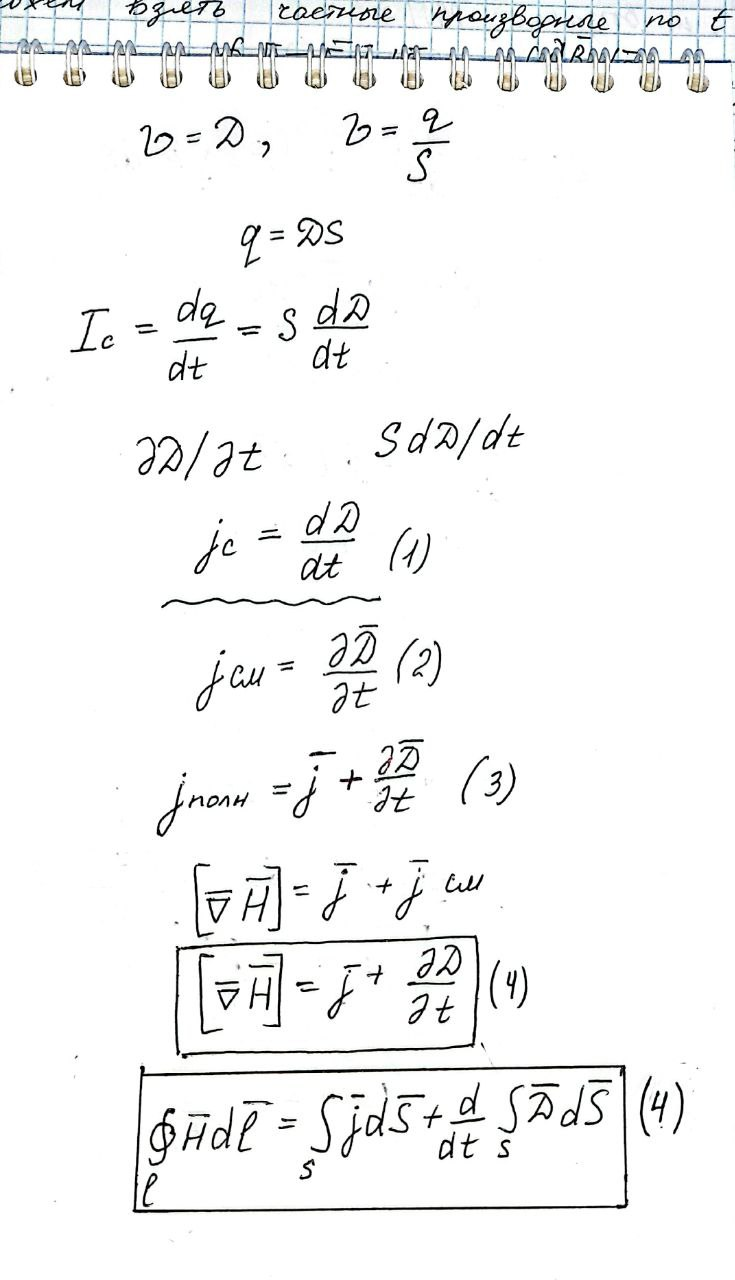 взять частные производные по t
σ = D, σ = q/S
q = DS
Ic = dq/dt = S dD/dt
∂D/∂t SdD/dt
jc = dD/dt (1)
jсм = ∂D̅/∂t (2)
jполн = j̅ + ∂D̅/∂t (3)
[∇̅ H̅] = j̅ + j̅ см
[∇̅ H̅] = j̅ + ∂D/∂t (4)
∮ₗ H̅dℓ̅ = ∫ₛ j̅dS̅ + d/dt ∫ₛ D̅dS̅ (4)